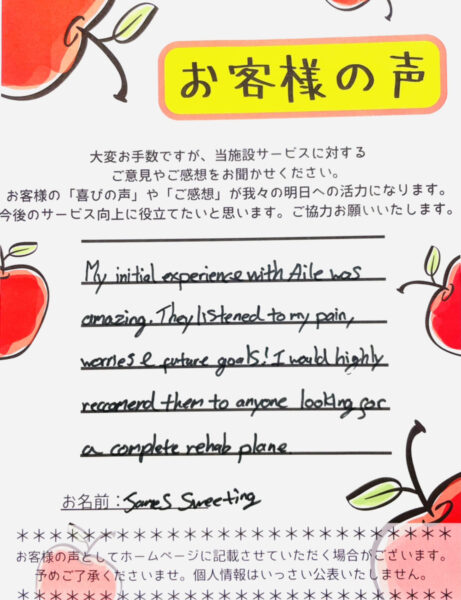 お客様の声
大変お手数ですが、当施設サービスに対する
ご意見やご感想をお聞かせください。
お客様の「喜びの声」や「ご感想」が我々の明日への活力になります。
今後のサービス向上に役立てたいと思います。ご協力お願いいたします。
My initial experience with Aile was
amazing. They listened to my pain,
worries & future goals! I would highly
recomend them to anyone looking for
a complete rehab plane
お名前：James Sweeting
＊＊＊＊＊＊＊＊＊＊＊＊＊＊＊＊＊＊＊＊＊＊＊
お客様の声としてホームページに記載させていただく場合がございます。
予めご了承くださいませ。個人情報はいっさい公表いたしません。
＊＊＊＊＊＊＊＊＊＊＊＊＊＊＊＊＊＊＊＊＊＊＊